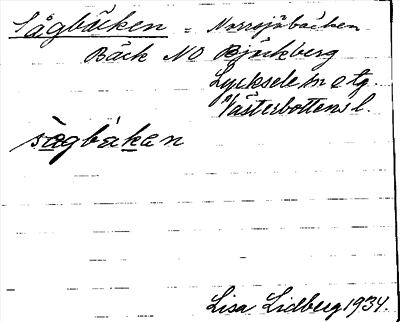 Sågbäcken = Norrsjöbäcken
Bäck NO Björkberg
Lycksele m o tg.
Västerbottens l.
sågbäkɛn
Lisa Lidberg 1934.